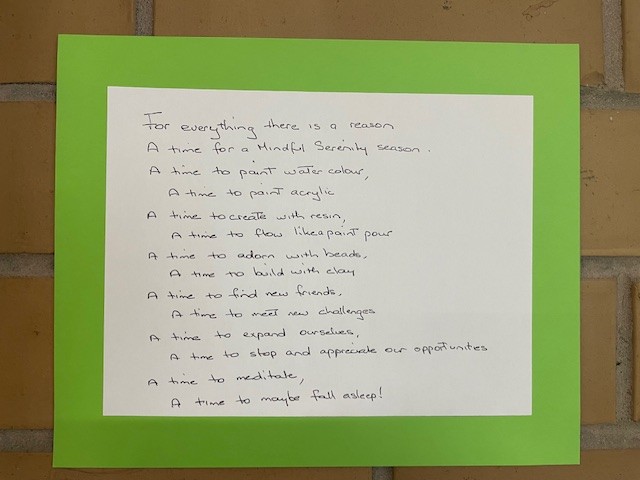 For everything there is a reason
A time for a Mindful Serenity season.
A time to paint water colour,
A time to paint acrylic
A time to create with resin,
A time to flow like a paint pour
A time to adorn with beads,
A time to build with clay
A time to find new friends,
A time to meet new challenges
A time to expand ourselves,
A time to stop and appreciate our opportunities
A time to meditate,
A time to maybe fall asleep!